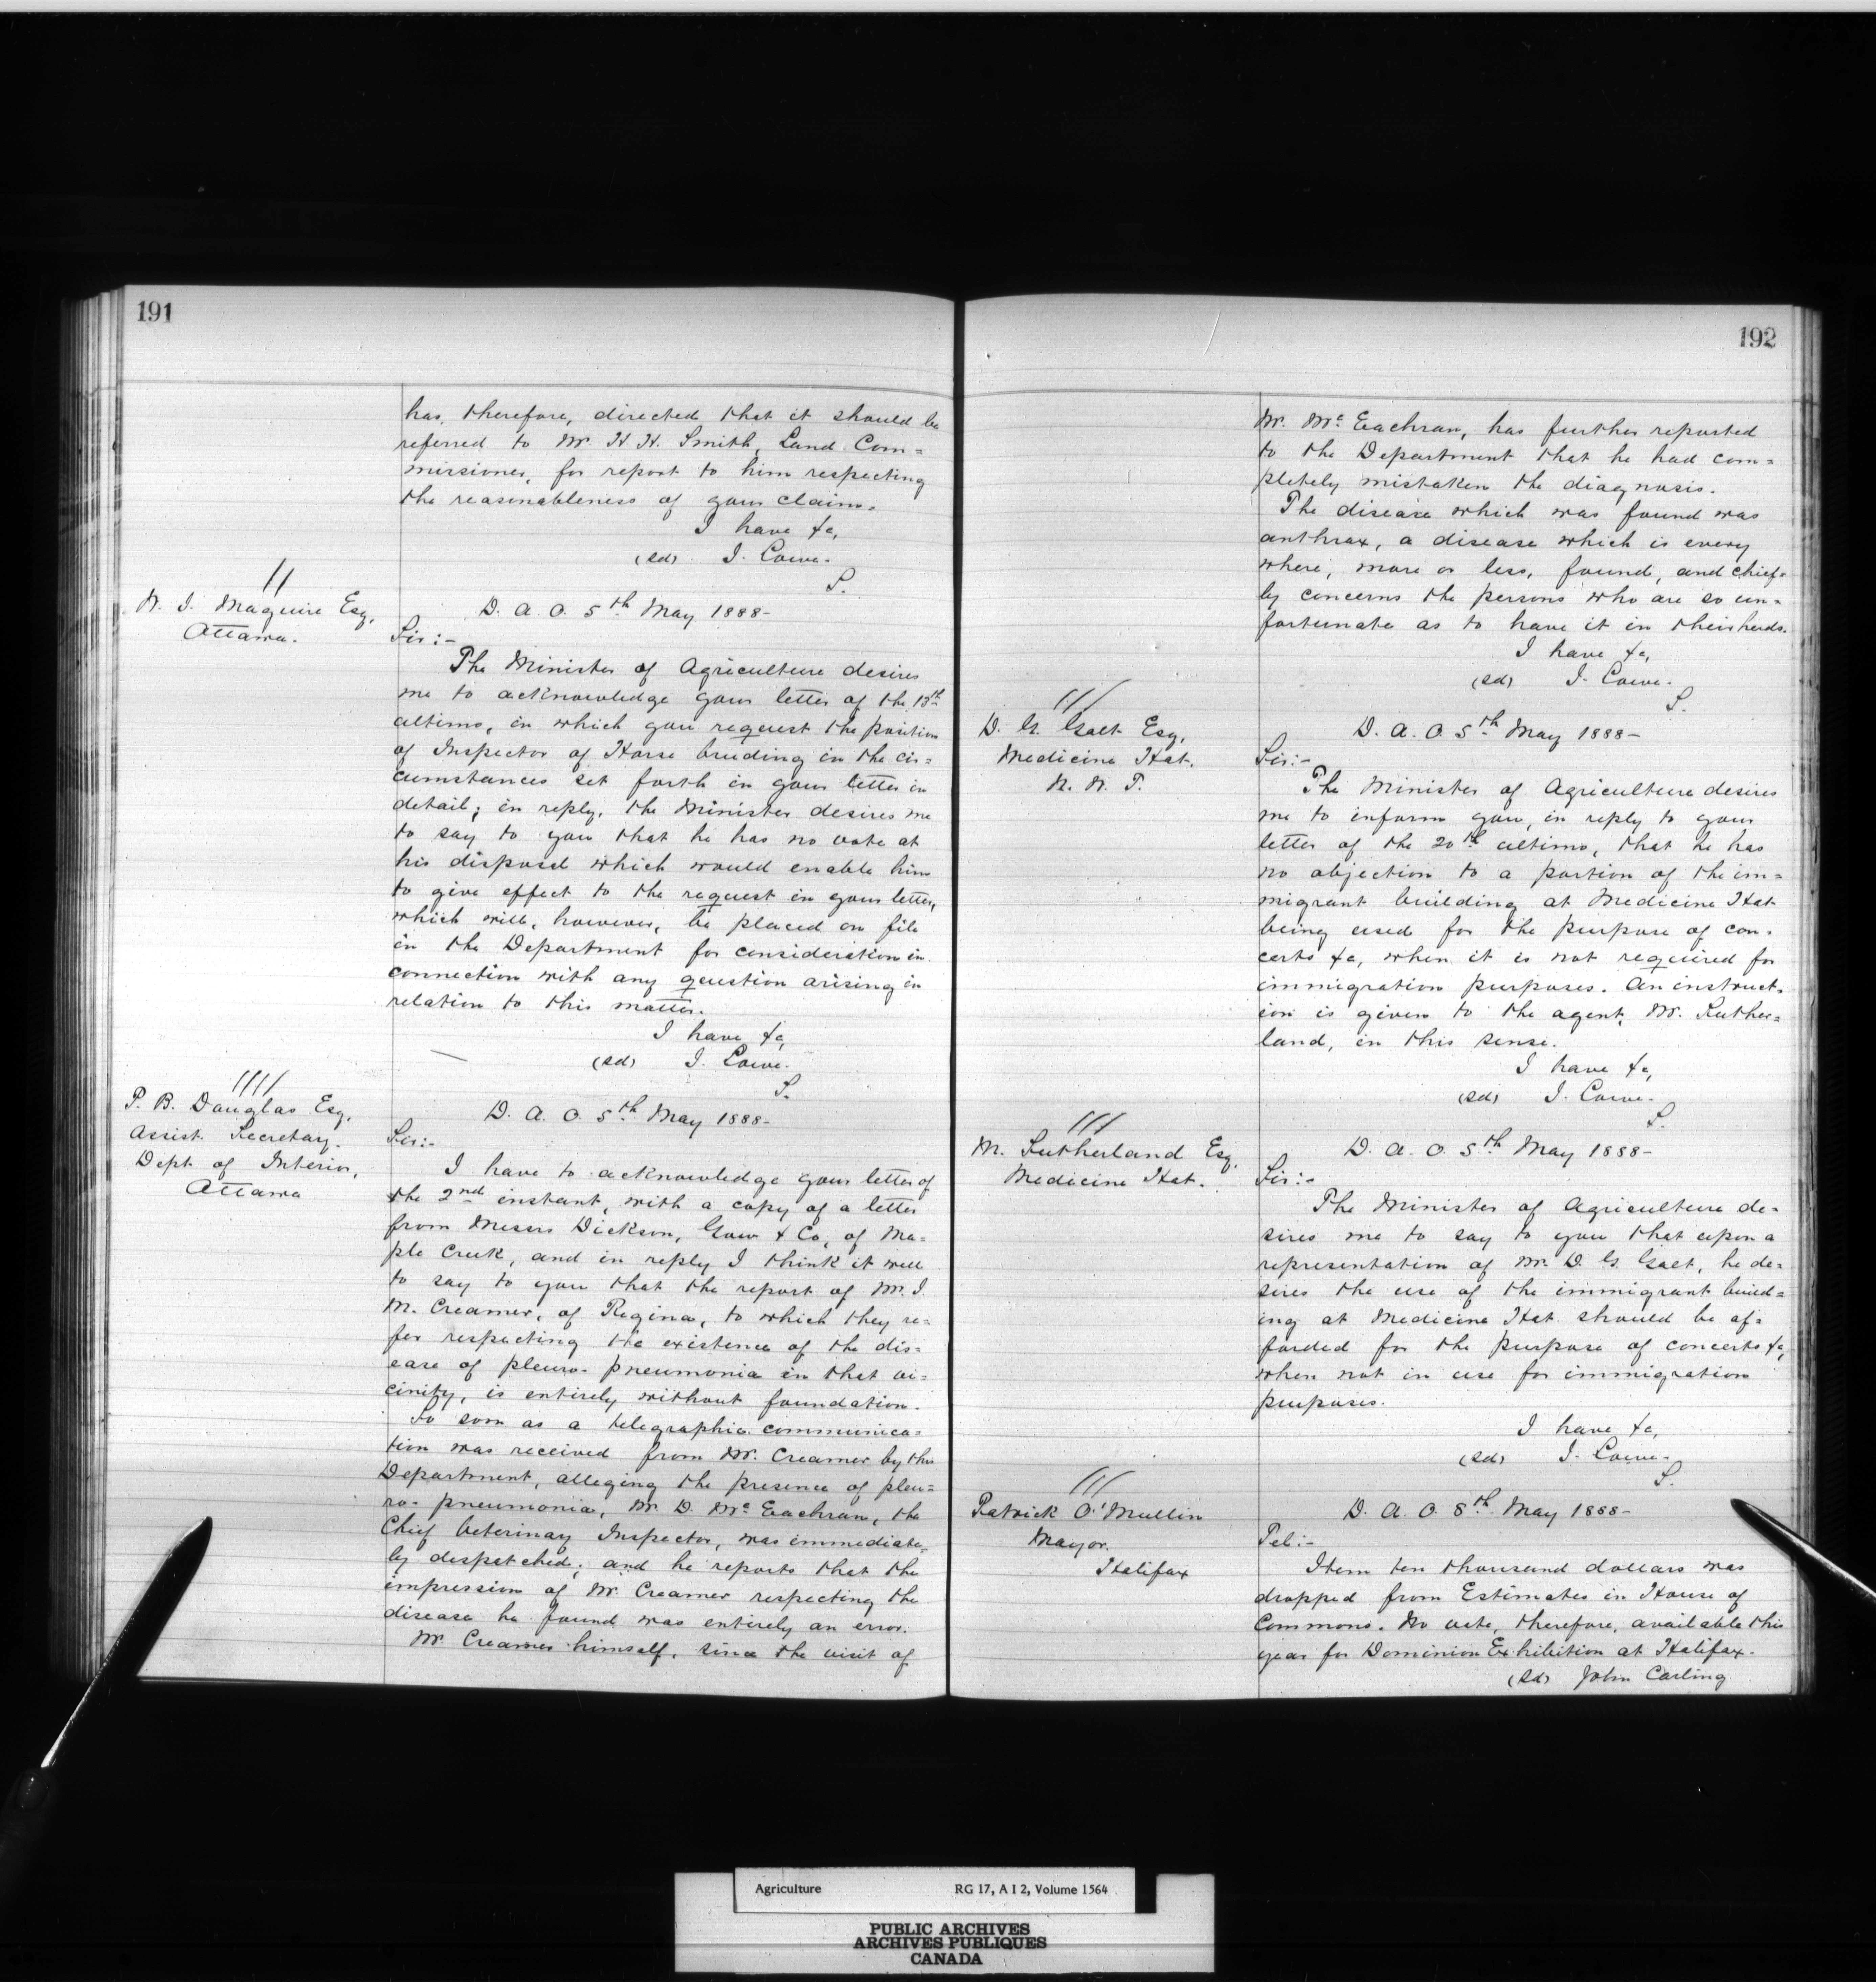 191
has, therefore, directed that it should be
referred to Mr. H. H. Smith, Land Com=
missioner, for report to him respecting
the reasonableness of your claim.
I have &c,
(sd) J. Lowe.
S.
//
W. J. Maguire Esq,
Ottawa.
D. A. O. 5th May 1888-
Sir:-
The Minister of Agriculture desires
me to acknowledge your letter of the 13th
ultimo, in which you request the position
of Inspector of Horse breeding in the cir=
cumstances set forth in your letter in
detail; in reply, the Minister desires me
to say to you that he has no vote at
his disposal which would enable him
to give effect to the request in your letter,
which will, however, be placed on file
in the Department for consideration in
connection with any question arising in
relation to this matter.
I have &c,
(sd) J. Lowe.
S.
////
P. B. Douglas Esq,
Assist. Secretary.
Dept. of Interior,
Ottawa
D. A. O. 5th May 1888-
Sir:-
I have to acknowledge your letter of
the 2nd instant, with a copy of a letter
from Messrs Dickson, Gow & Co, of Ma=
ple Creek, and in reply I think it well
to say to you that the report of Mr. J.
M. Creamer, of Regina, to which they re=
fer respecting the existence of the dis=
ease of pleuro-pneumonia in that vi=
cinity, is entirely without foundation.
So soon as a telegraphic communica=
tion was received from Mr. Creamer by this
Department, alleging the presence of pleu=
ro-pneumonia, Mr. D. McEachran, the
Chief Veterinary Inspector, was immediate=
ly despatched; and he reports that the
impression of Mr. Creamer respecting the
disease he found was entirely an error.
Mr. Creamer himself, since the visit of
192
Mr. McEachran, has further reported
to the Department that he had com=
pletely mistaken the diagnosis.
The disease which was found was
anthrax, a disease which is every
where, more or less, found, and chief=
ly concerns the persons who are so un=
fortunate as to have it in their herds.
I have &c,
(sd) J. Lowe.
S.
///
D. G. Galt Esq,
Medicine Hat.
N. W. T.
D. A. O. 5th May 1888-
Sir:-
The Minister of Agriculture desires
me to inform you, in reply to your
letter of the 20th ultimo, that he has
no objection to a portion of the im=
migrant building at Medicine Hat
being used for the purpose of con=
certs &c, when it is not required for
immigration purposes. An instruct=
ion is given to the agent, Mr. Suther=
land, in this sense.
I have &c,
(sd) J. Lowe.
S.
///
M. Sutherland Esq,
Medicine Hat.
D. A. O. 5th May 1888-
Sir:-
The Minister of Agriculture de=
sires me to say to you that upon a
representation of Mr. D. G. Galt, he de=
sires the use of the immigrant build=
ing at Medicine Hat should be af=
forded for the purpose of concerts &c,
when not in use for immigration
purposes.
I have &c,
(sd) J. Lowe.
S.
///
Patrick O'Mullin
Mayor.
Halifax
D. A. O. 8th May 1888-
Tel:-
Item ten thousand dollars was
dropped from Estimates in House of
Commons. No vote, therefore, available this
year for Dominion Exhibition at Halifax.
(sd) John Carling
Agriculture RG 17, A I 2, Volume 1564
PUBLIC ARCHIVES
ARCHIVES PUBLIQUES
CANADA